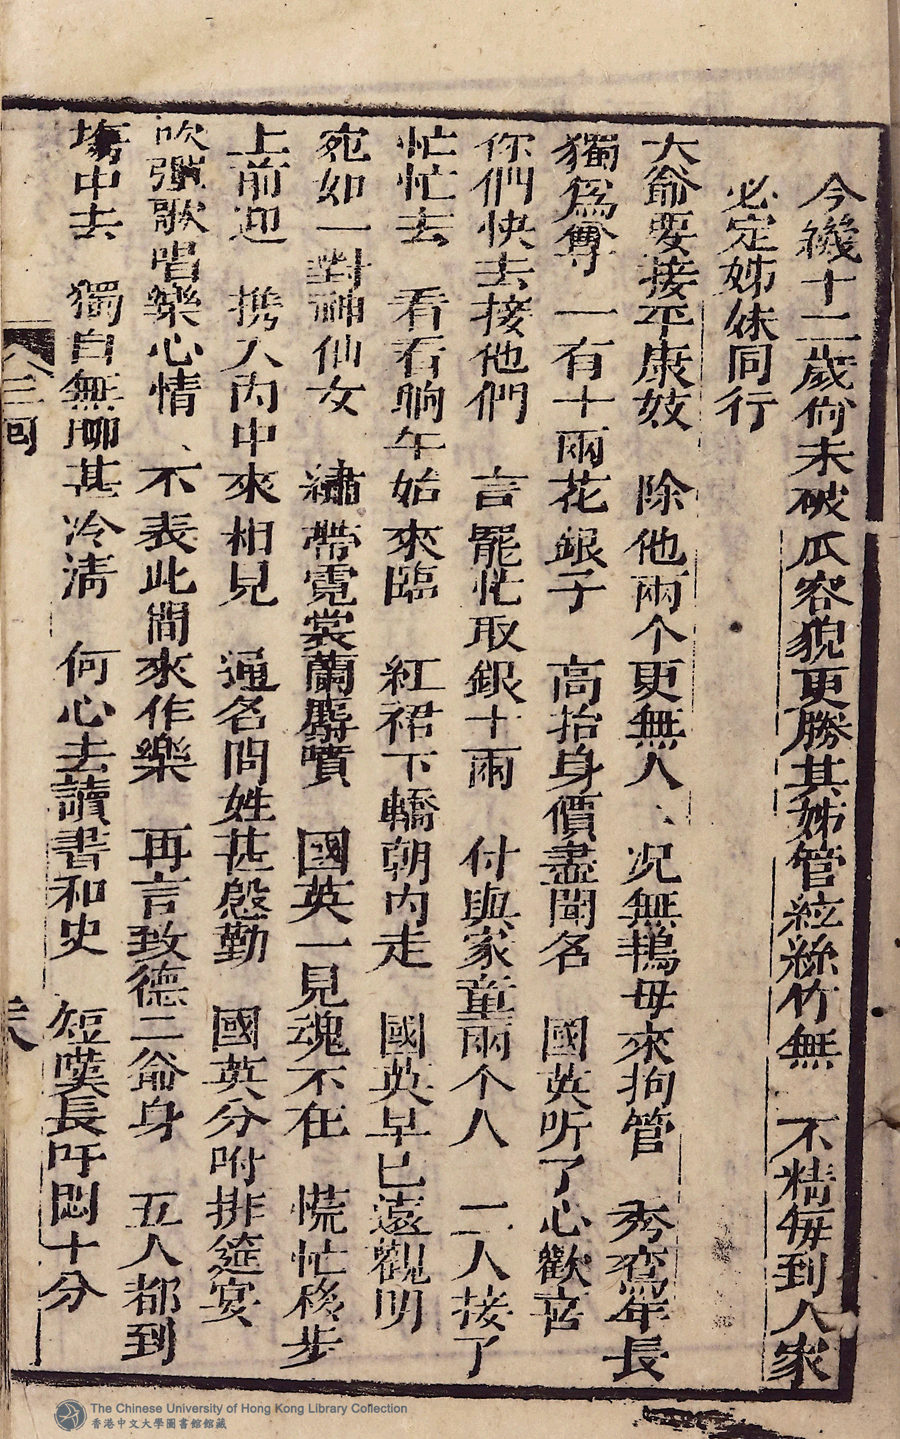 今纔十二歲尙未破瓜容貌更勝其姊管絃絲竹無 不精每到人家
必定姊妹同行
大爺要接平康妓 除他兩个更無人、況無鴇母來拘管 秀鸞年長
獨爲尊 一有十兩花銀子 高抬身價盡聞名 國英听了心歡喜
你們快去接他們 言罷忙取銀十兩 付與家童兩个人 二人接了
忙忙去 看看晌午始來臨 紅裙下轎朝內走 國英早已遠觀明
宛如一對神仙女 繡帶霓裳蘭麝噴 國英一見魂不在 慌忙移步
上前迎 携入內中來相見 通名問姓甚慇勤 國英分咐排筵宴
吹彈歌唱樂心情、不表此間來作樂 再言致德二爺身 五人都到
塲中去 獨自無聊甚冷淸 何心去讀書和史 短嘆長吁悶十分
三回
The Chinese University of Hong Kong Library Collection
香港中文大學圖書館館藏